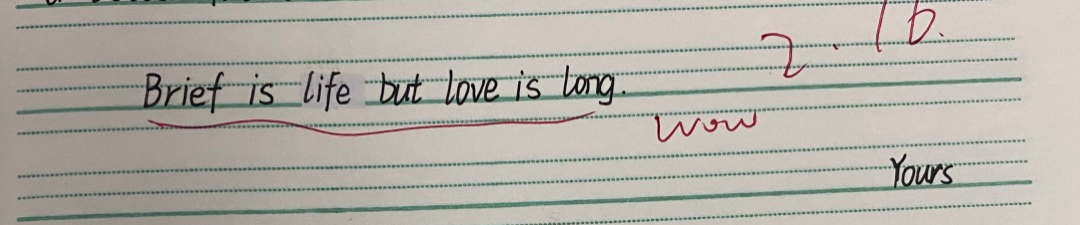 2.16.
Brief is life but love is long.
wow
Yours